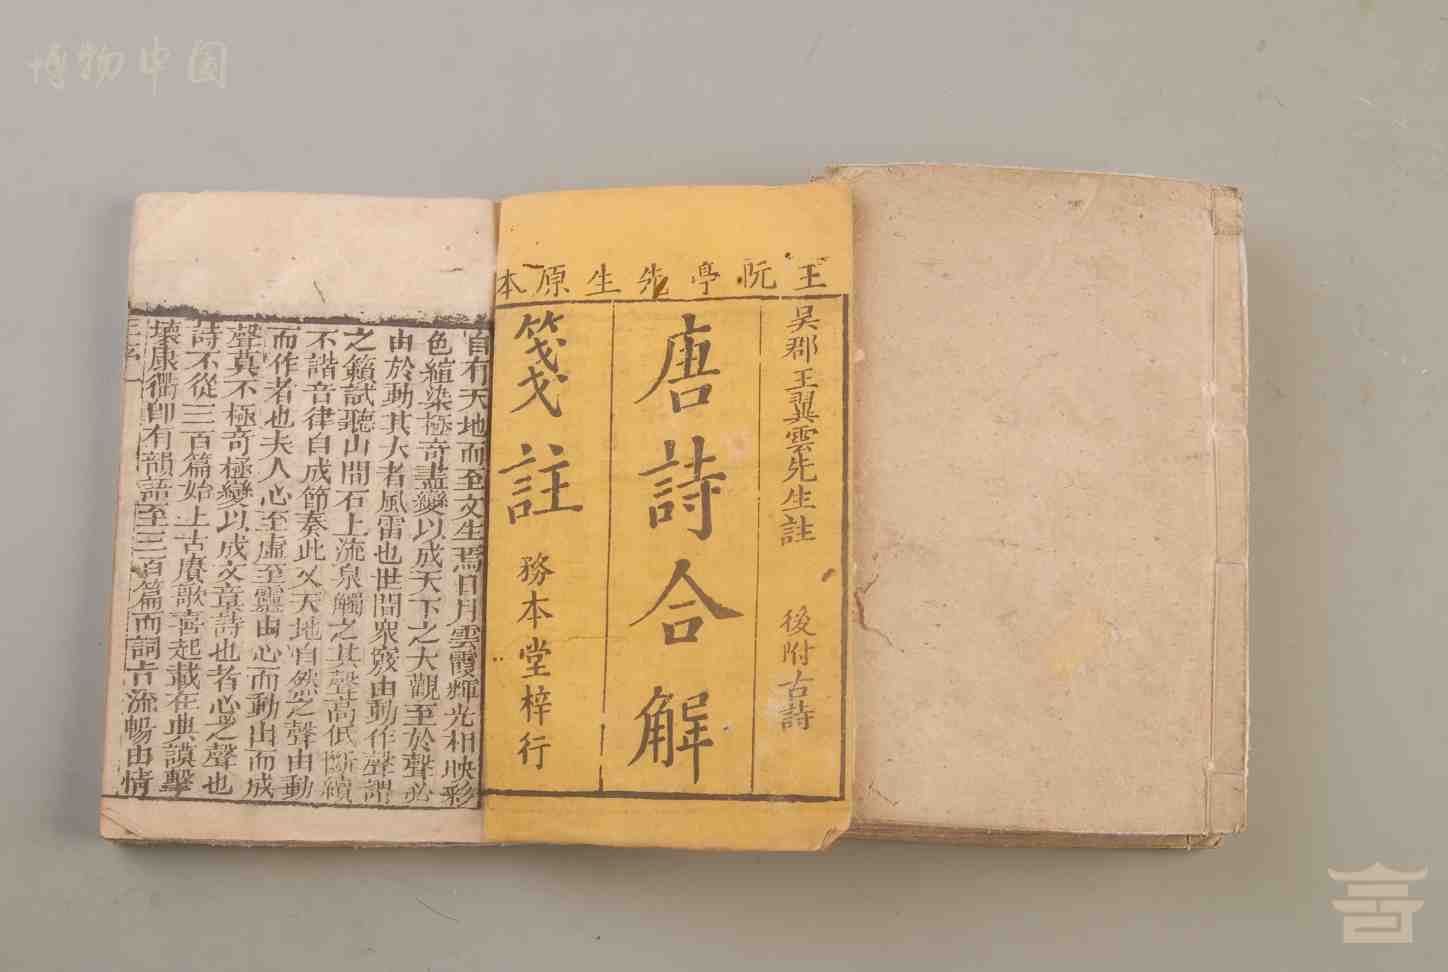 博物中国
王阮亭先生原本
吳郡王翼雲先生註 後附古詩
唐詩合解
箋註 務本堂梓行
自有天地而至文生焉日月雲霞輝光相映彩
色維染極奇盡變以成天下之大觀至於聲必
由於動其大者風雷也世間衆竅由動作聲謂
之籟試聽山間石上流泉觸之其聲高低斷續
不諧音律自成節奏此乂天地自然之聲由動
而作者也夫人心至虛至靈由心而動出而成
聲莫不極奇極變以成文章詩也者心之聲也
詩不從三百篇始上古賡歌喜起載在典謨擊
壤康衢卽有韻語至三百篇而詞古流暢由情